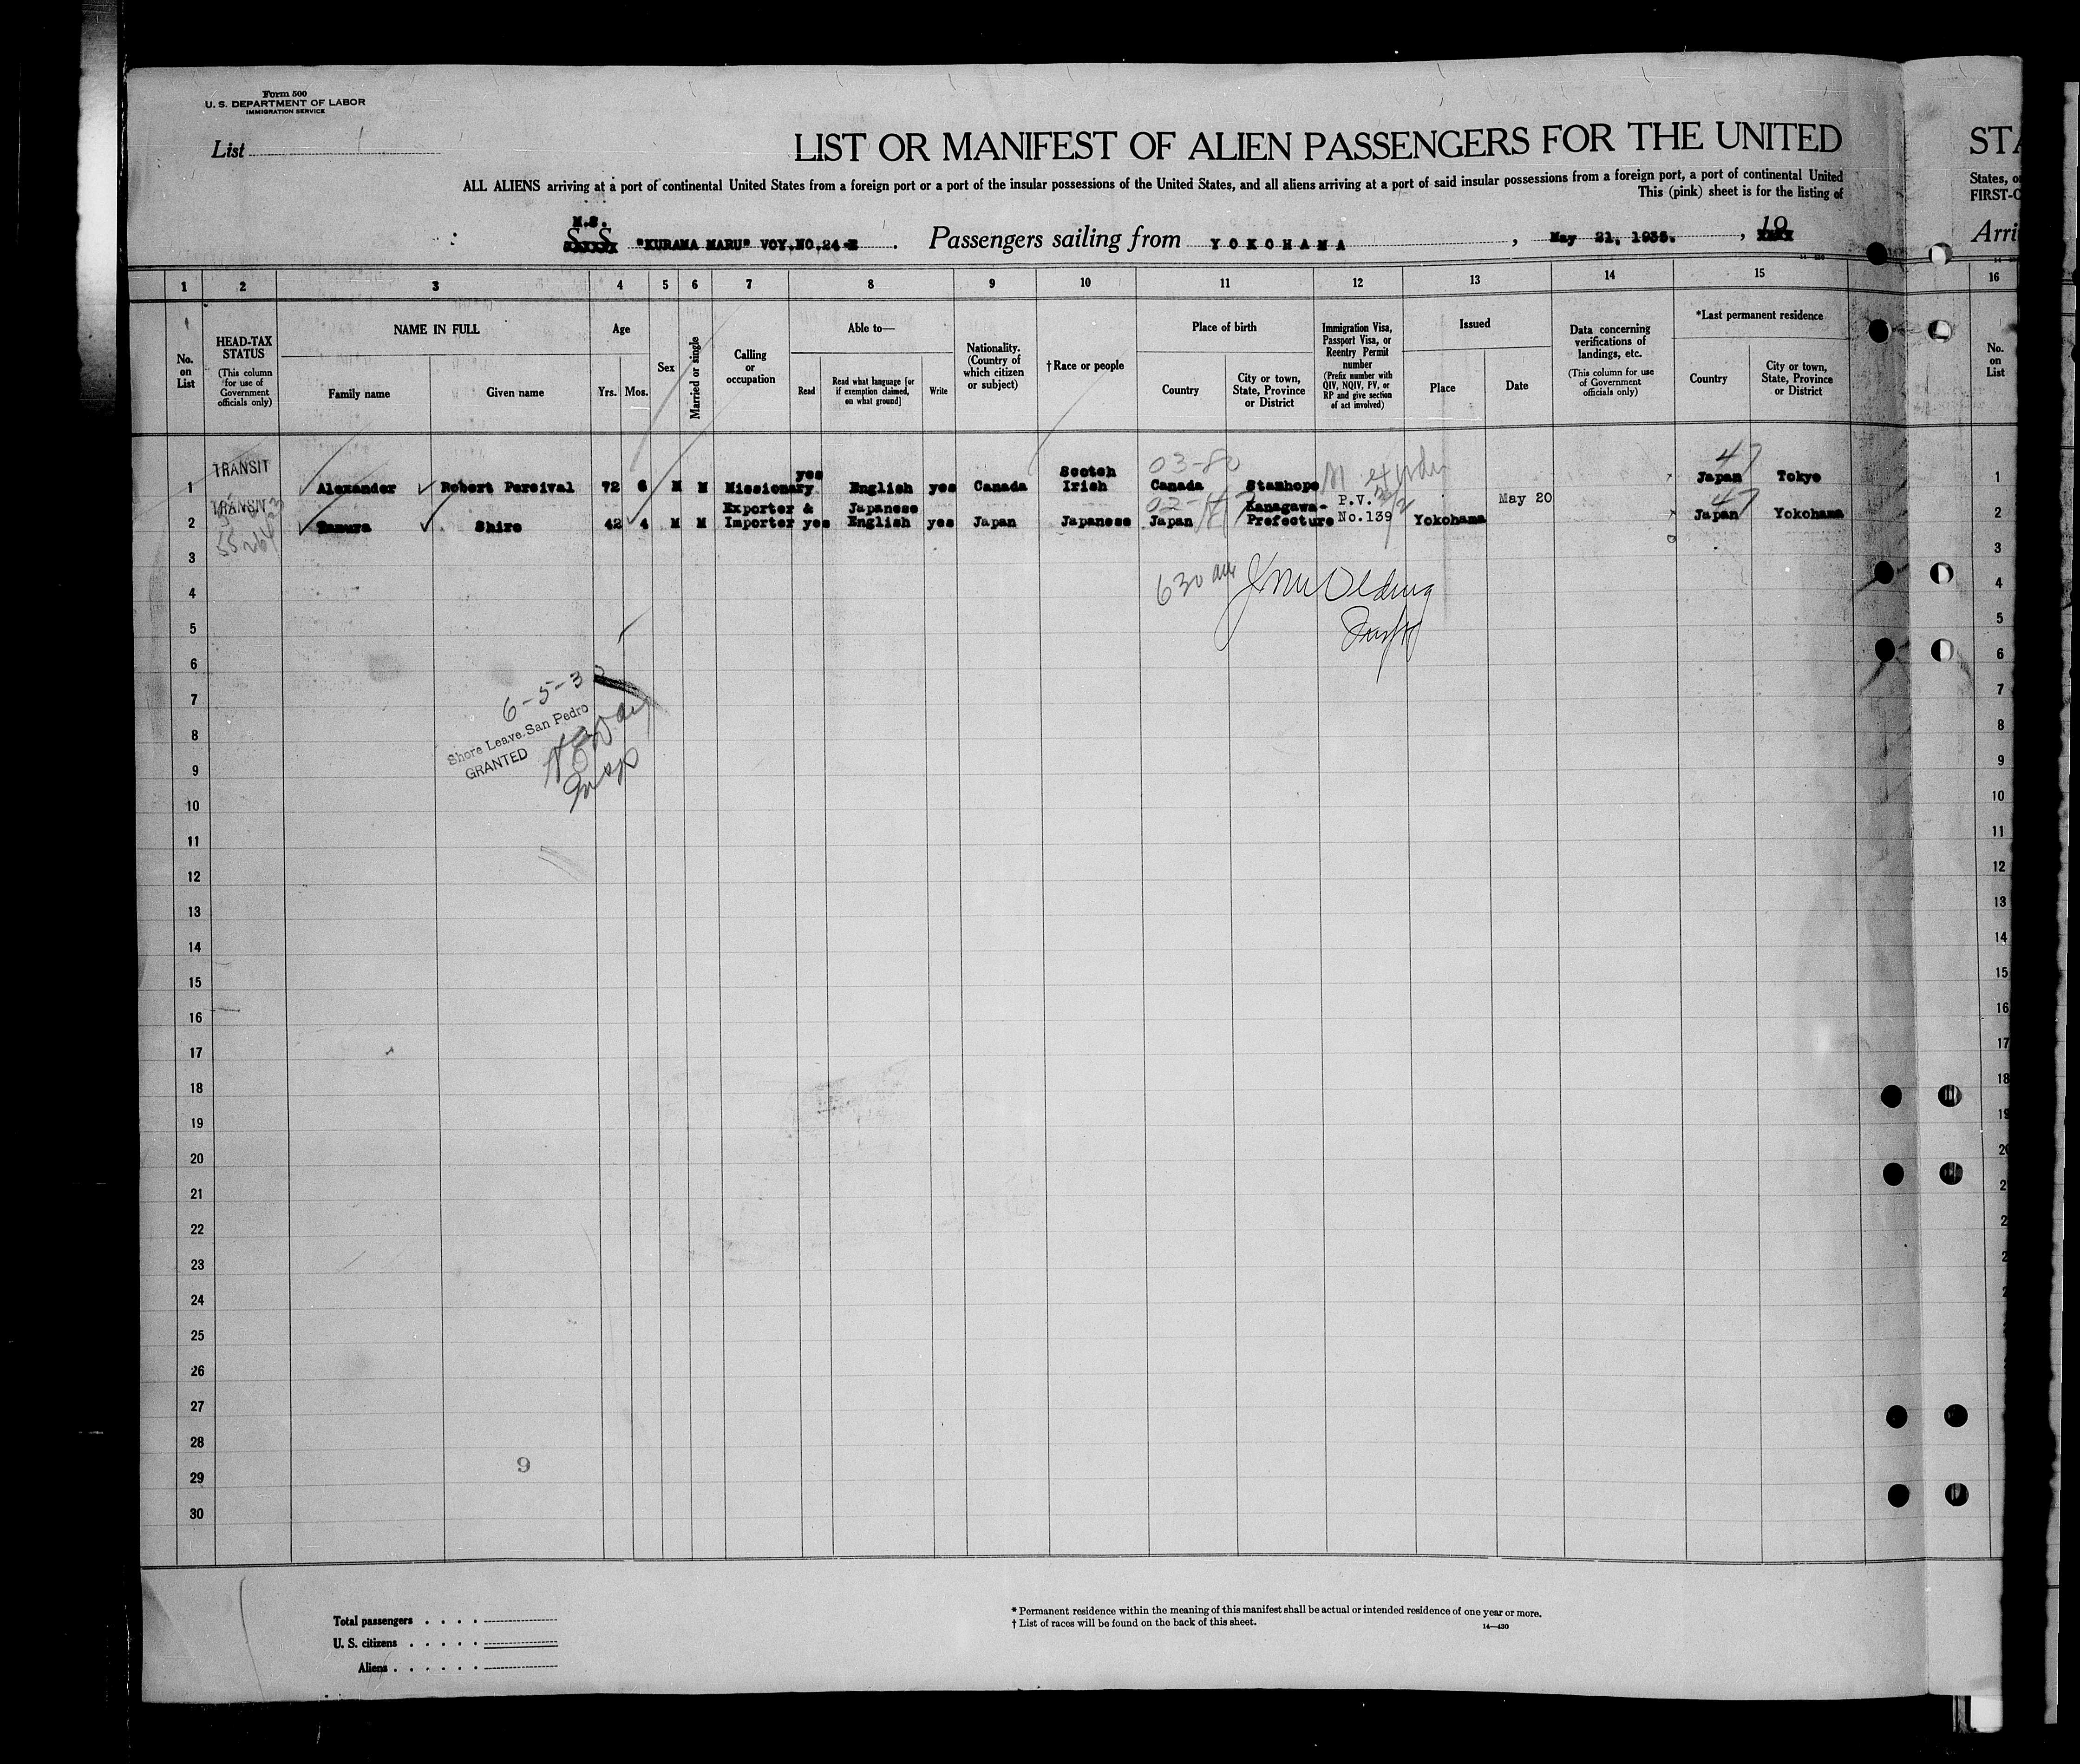 Form 500
U. S. DEPARTMENT OF LABOR
IMMIGRATION SERVICE
List 1
LIST OR MANIFEST OF ALIEN PASSENGERS FOR THE UNITED
STA
ALL ALIENS arriving at a port of continental United States from a foreign port or a port of the insular possessions of the United States, and all aliens arriving at a port of said insular possessions from a foreign port, a port of continental United
States, o
This (pink) sheet is for the listing of
FIRST-C
M.S.
S. S. "KURAMA MARU" VOY.NO.24-E . Passengers sailing from YOKOHAMA , May 21, 1935. , 19
Arri
1 2 3 4 5 6 7 8 9 10 11 12 13 14 15 16
No. on List
HEAD-TAX STATUS
(This column for use of Government officials only)
NAME IN FULL
Family name
Given name
Age
Yrs. Mos.
Sex
Married or single
Calling or occupation
Able to—
Read
Read what language [or if exemption claimed, on what ground]
Write
Nationality. (Country of which citizen or subject)
†Race or people
Place of birth
Country
City or town, State, Province or District
Immigration Visa, Passport Visa, or Reentry Permit number
(Prefix number with QIV, NQIV, PV, or RP and give section of act involved)
Issued
Place
Date
Data concerning verifications of landings, etc.
(This column for use of Government officials only)
*Last permanent residence
Country
City or town, State, Province or District
No. on List
TRANSIT
03-80
47
1 Alexander Robert Percival 72 6 M M Missionary yes English yes Canada Scotch Irish Canada Stamhope Japan Tokyo 1
TRANSIT
47
2 Tamura Shiro 42 4 M M Exporter & Importer yes Japanese English yes Japan Japanese Japan Kanagawa-Prefecture P.V. No.139 Yokohama May 20 Japan Yokohama 2
3 3
4 630 am 4
5 5
6 6
7 6-5-3 7
8 Shore Leave, San Pedro 8
9 GRANTED 9
Insp
10 10
11 11
12 12
13 13
14 14
15 15
16 16
17 17
18 18
19 19
20
21
22
23
24
25
26
27
28
29
9
30
Total passengers
U. S. citizens
Aliens
* Permanent residence within the meaning of this manifest shall be actual or intended residence of one year or more.
† List of races will be found on the back of this sheet.
14—430